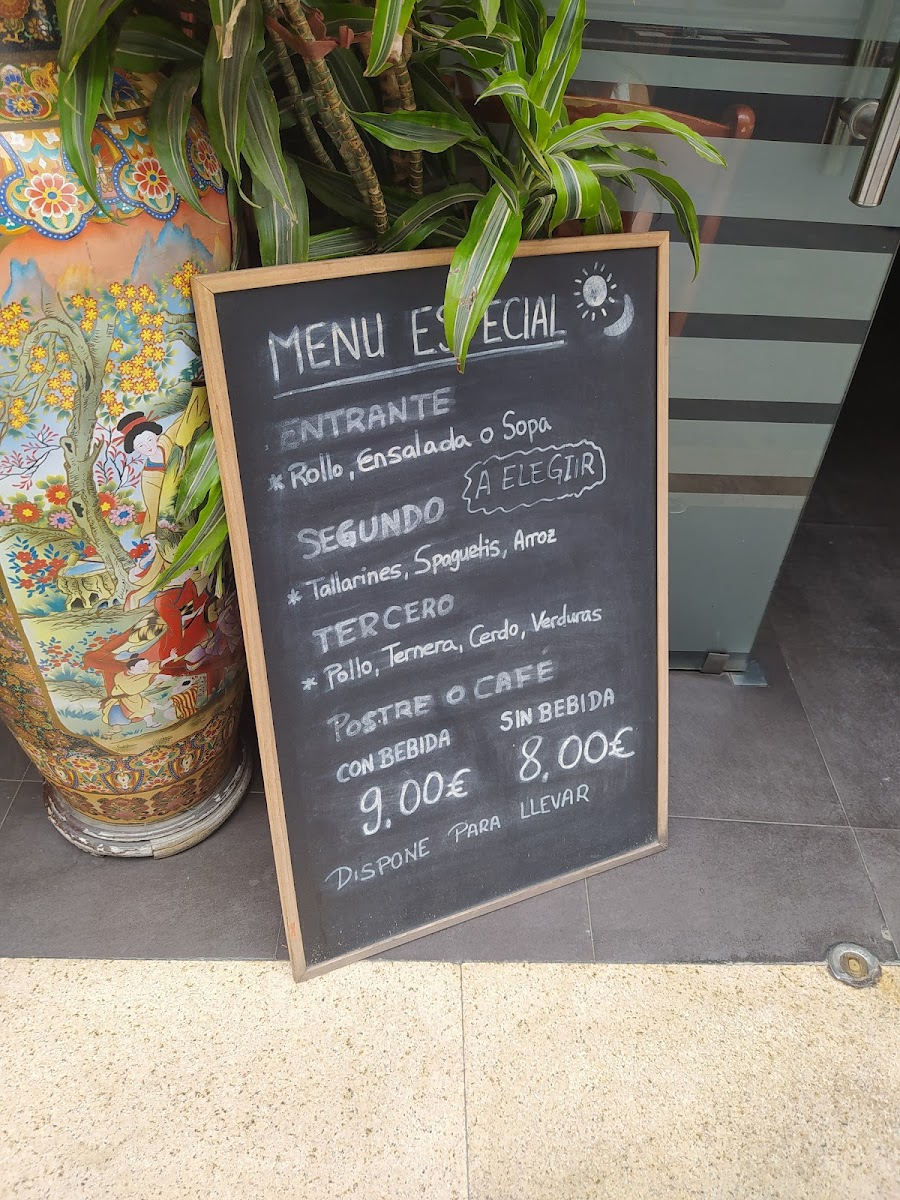 MENU ESPECIAL
ENTRANTE
* Rollo, Ensalada o Sopa
A ELEGIR
SEGUNDO
* Tallarines, Spaguetis, Arroz
TERCERO
* Pollo, Ternera, Cerdo, Verduras
POSTRE O CAFÉ
CON BEBIDA
SIN BEBIDA
9.00€
8.00€
DISPONE PARA LLEVAR